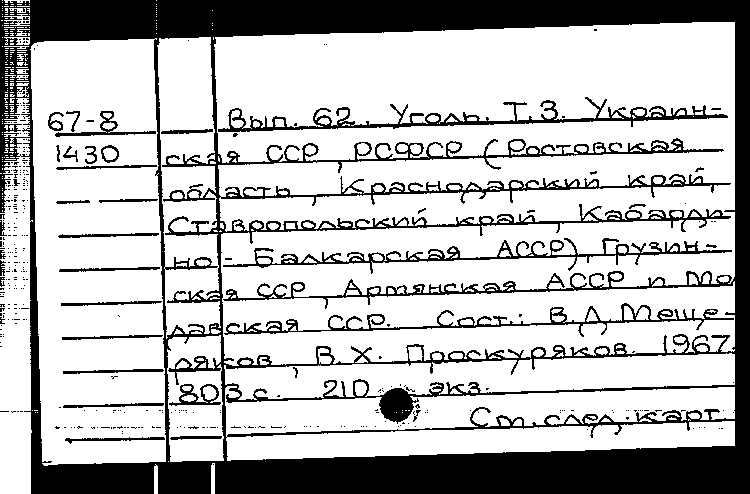 67-8 Вып. 62. Уголь. Т.3. Украин-
1430 ская ССР, РСФСР (Ростовская
область, Краснодарский край,
Ставропольский край, Кабарди-
но-Балкарская АССР), Грузин-
ская ССР, Армянская АССР и Мол
давская ССР. Сост.: В.Д. Меще-
ряков, В.Х. Проскуряков. 1967.
803 с. 210 экз.
См. след. карт